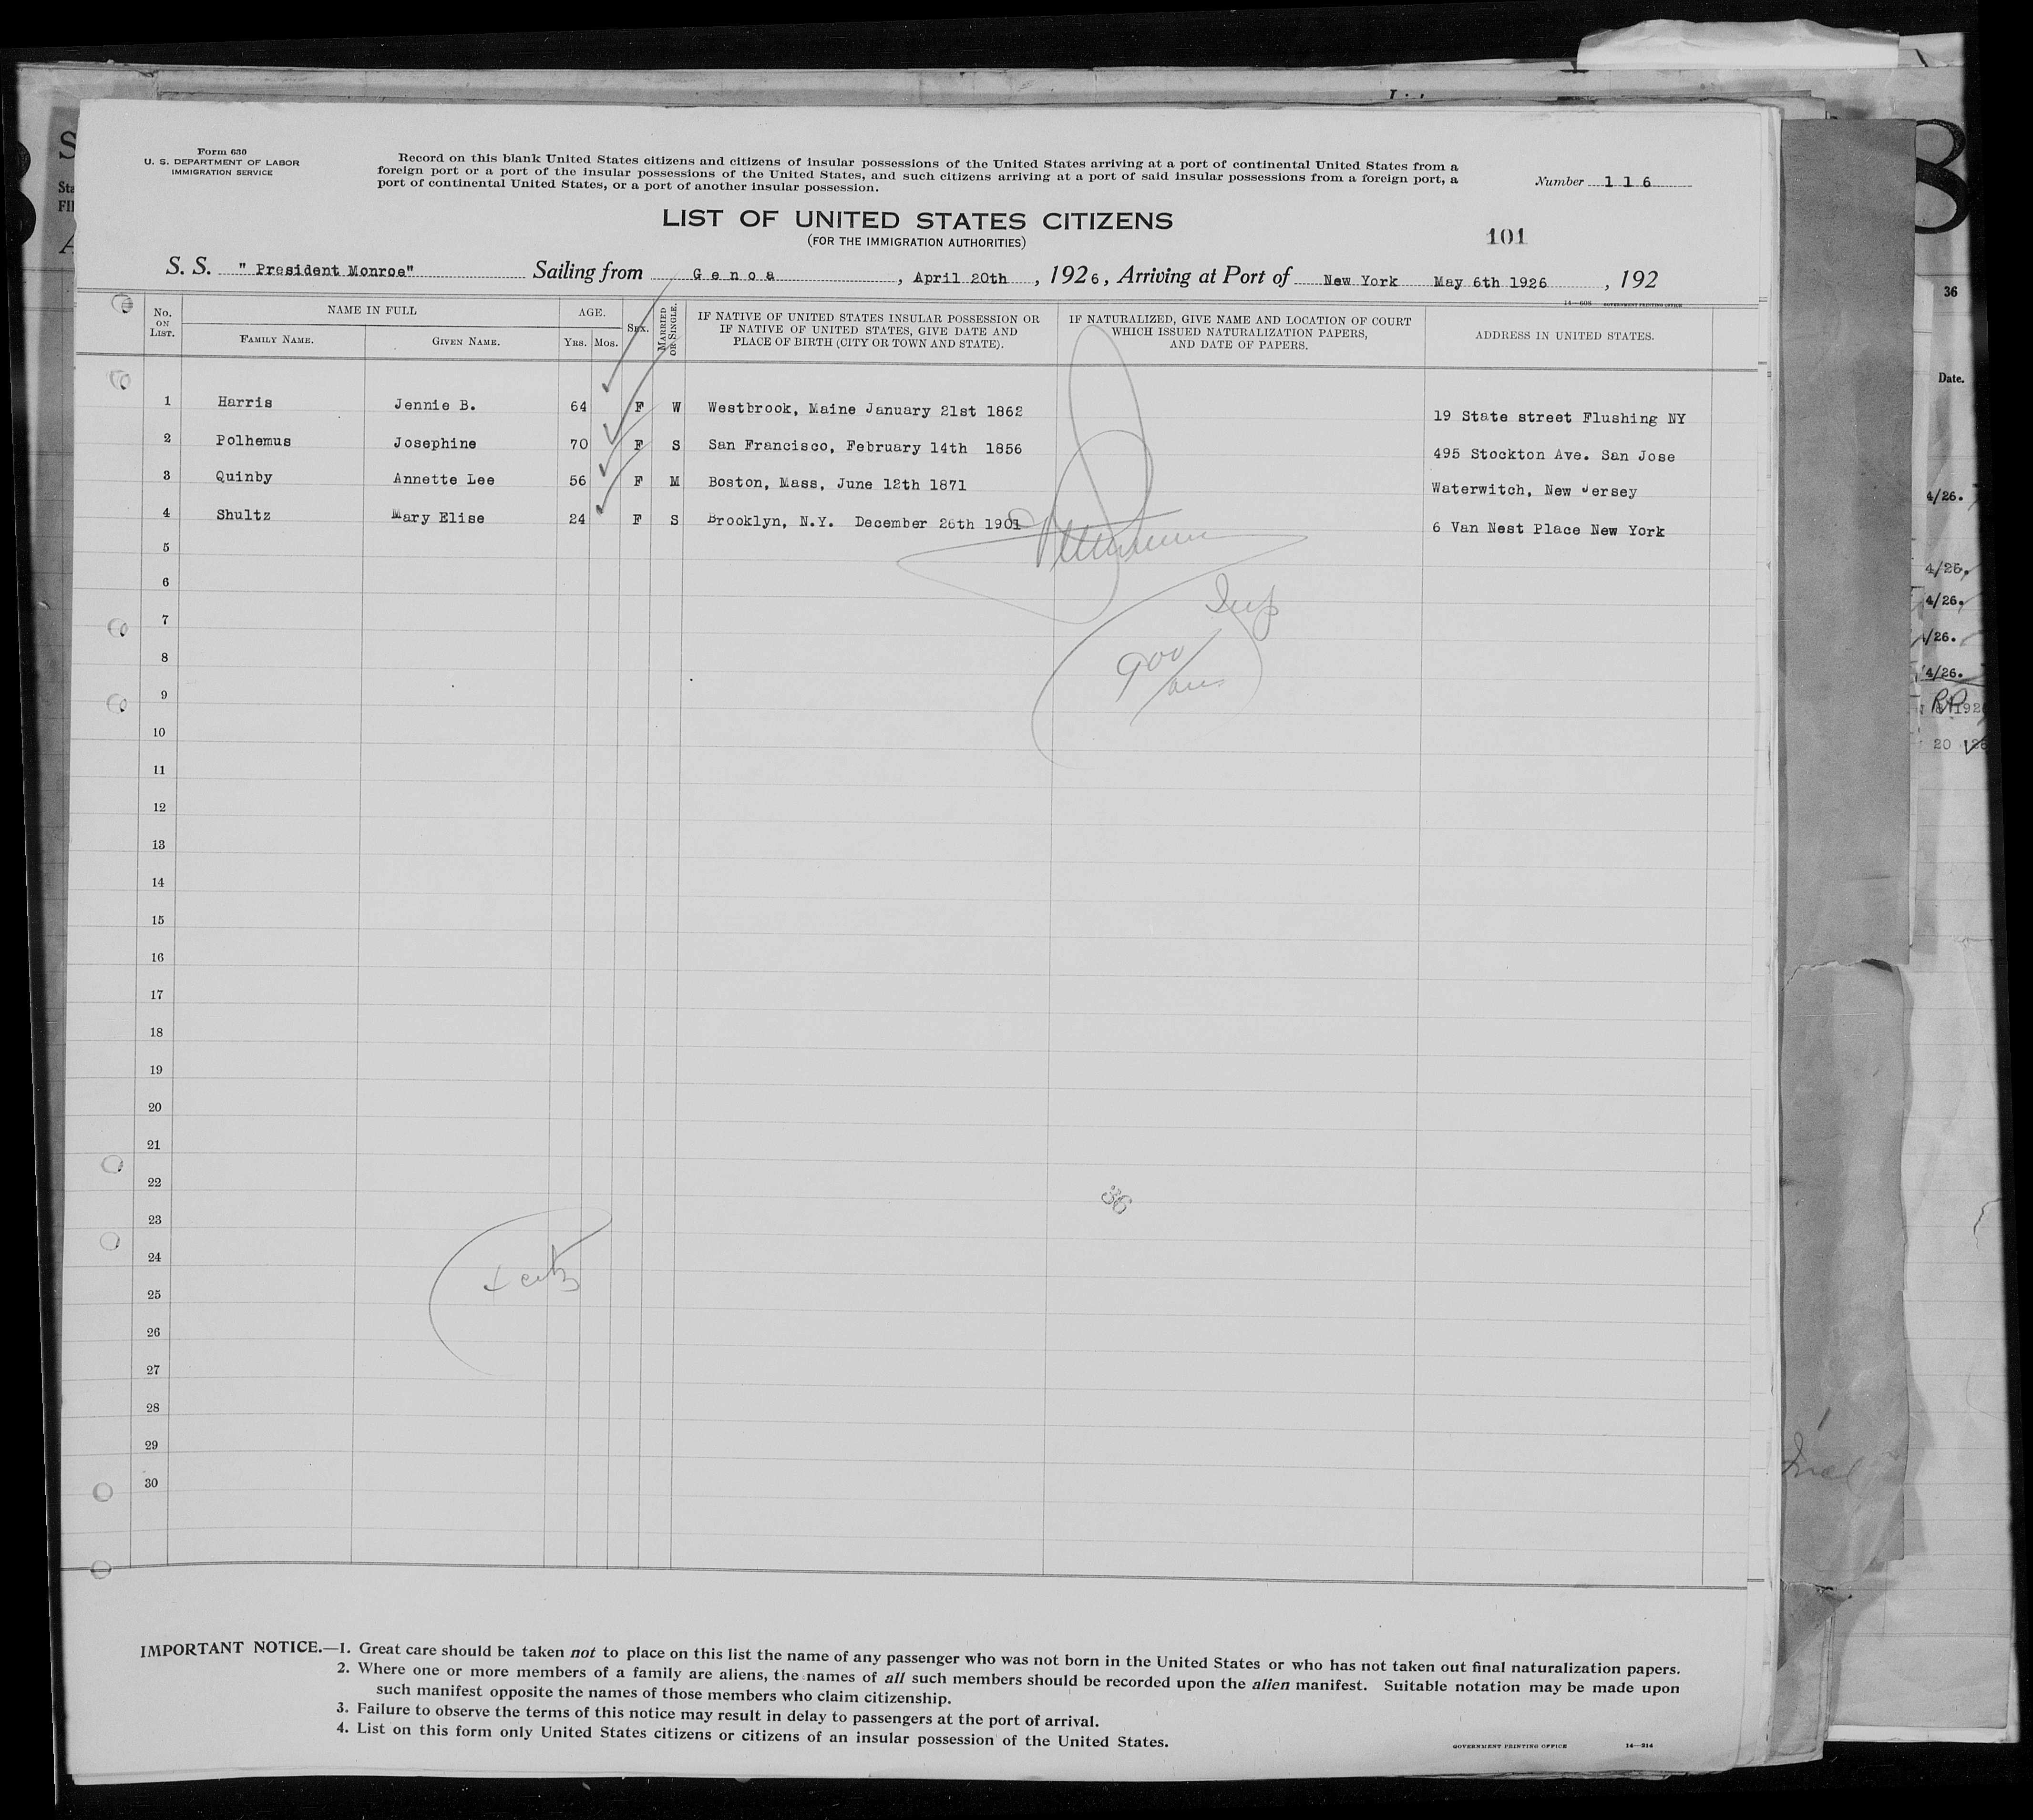 Form 630
U. S. DEPARTMENT OF LABOR
IMMIGRATION SERVICE
Record on this blank United States citizens and citizens of insular possessions of the United States arriving at a port of continental United States from a
foreign port or a port of the insular possessions of the United States, and such citizens arriving at a port of said insular possessions from a foreign port, a
port of continental United States, or a port of another insular possession.
Number 1 1 6
LIST OF UNITED STATES CITIZENS
(FOR THE IMMIGRATION AUTHORITIES)
101
S. S. " President Monroe" Sailing from G e n o a , April 20th , 1926, Arriving at Port of New York May 6th 1926 , 192
14—608 GOVERNMENT PRINTING OFFICE
No. ON LIST.
NAME IN FULL
FAMILY NAME.
GIVEN NAME.
AGE.
YRS. MOS.
SEX.
MARRIED OR SINGLE.
IF NATIVE OF UNITED STATES INSULAR POSSESSION OR
IF NATIVE OF UNITED STATES, GIVE DATE AND
PLACE OF BIRTH (CITY OR TOWN AND STATE).
IF NATURALIZED, GIVE NAME AND LOCATION OF COURT
WHICH ISSUED NATURALIZATION PAPERS,
AND DATE OF PAPERS.
ADDRESS IN UNITED STATES.
1 Harris Jennie B. 64 F W Westbrook, Maine January 21st 1862 19 State street Flushing NY
2 Polhemus Josephine 70 F S San Francisco, February 14th 1856 495 Stockton Ave. San Jose
3 Quinby Annette Lee 56 F M Boston, Mass, June 12th 1871 Waterwitch, New Jersey
4 Shultz Mary Elise 24 F S Brooklyn, N.Y. December 26th 1901 6 Van Nest Place New York
5
6
7
8
9
10
11
12
13
14
15
16
17
18
19
20
21
22
23
24
25
26
27
28
29
30
36
IMPORTANT NOTICE.—1. Great care should be taken not to place on this list the name of any passenger who was not born in the United States or who has not taken out final naturalization papers.
2. Where one or more members of a family are aliens, the names of all such members should be recorded upon the alien manifest. Suitable notation may be made upon
such manifest opposite the names of those members who claim citizenship.
3. Failure to observe the terms of this notice may result in delay to passengers at the port of arrival.
4. List on this form only United States citizens or citizens of an insular possession of the United States.
GOVERNMENT PRINTING OFFICE 14—314
36
Date.
4/26.
4/26.
4/26.
/26.
4/26.